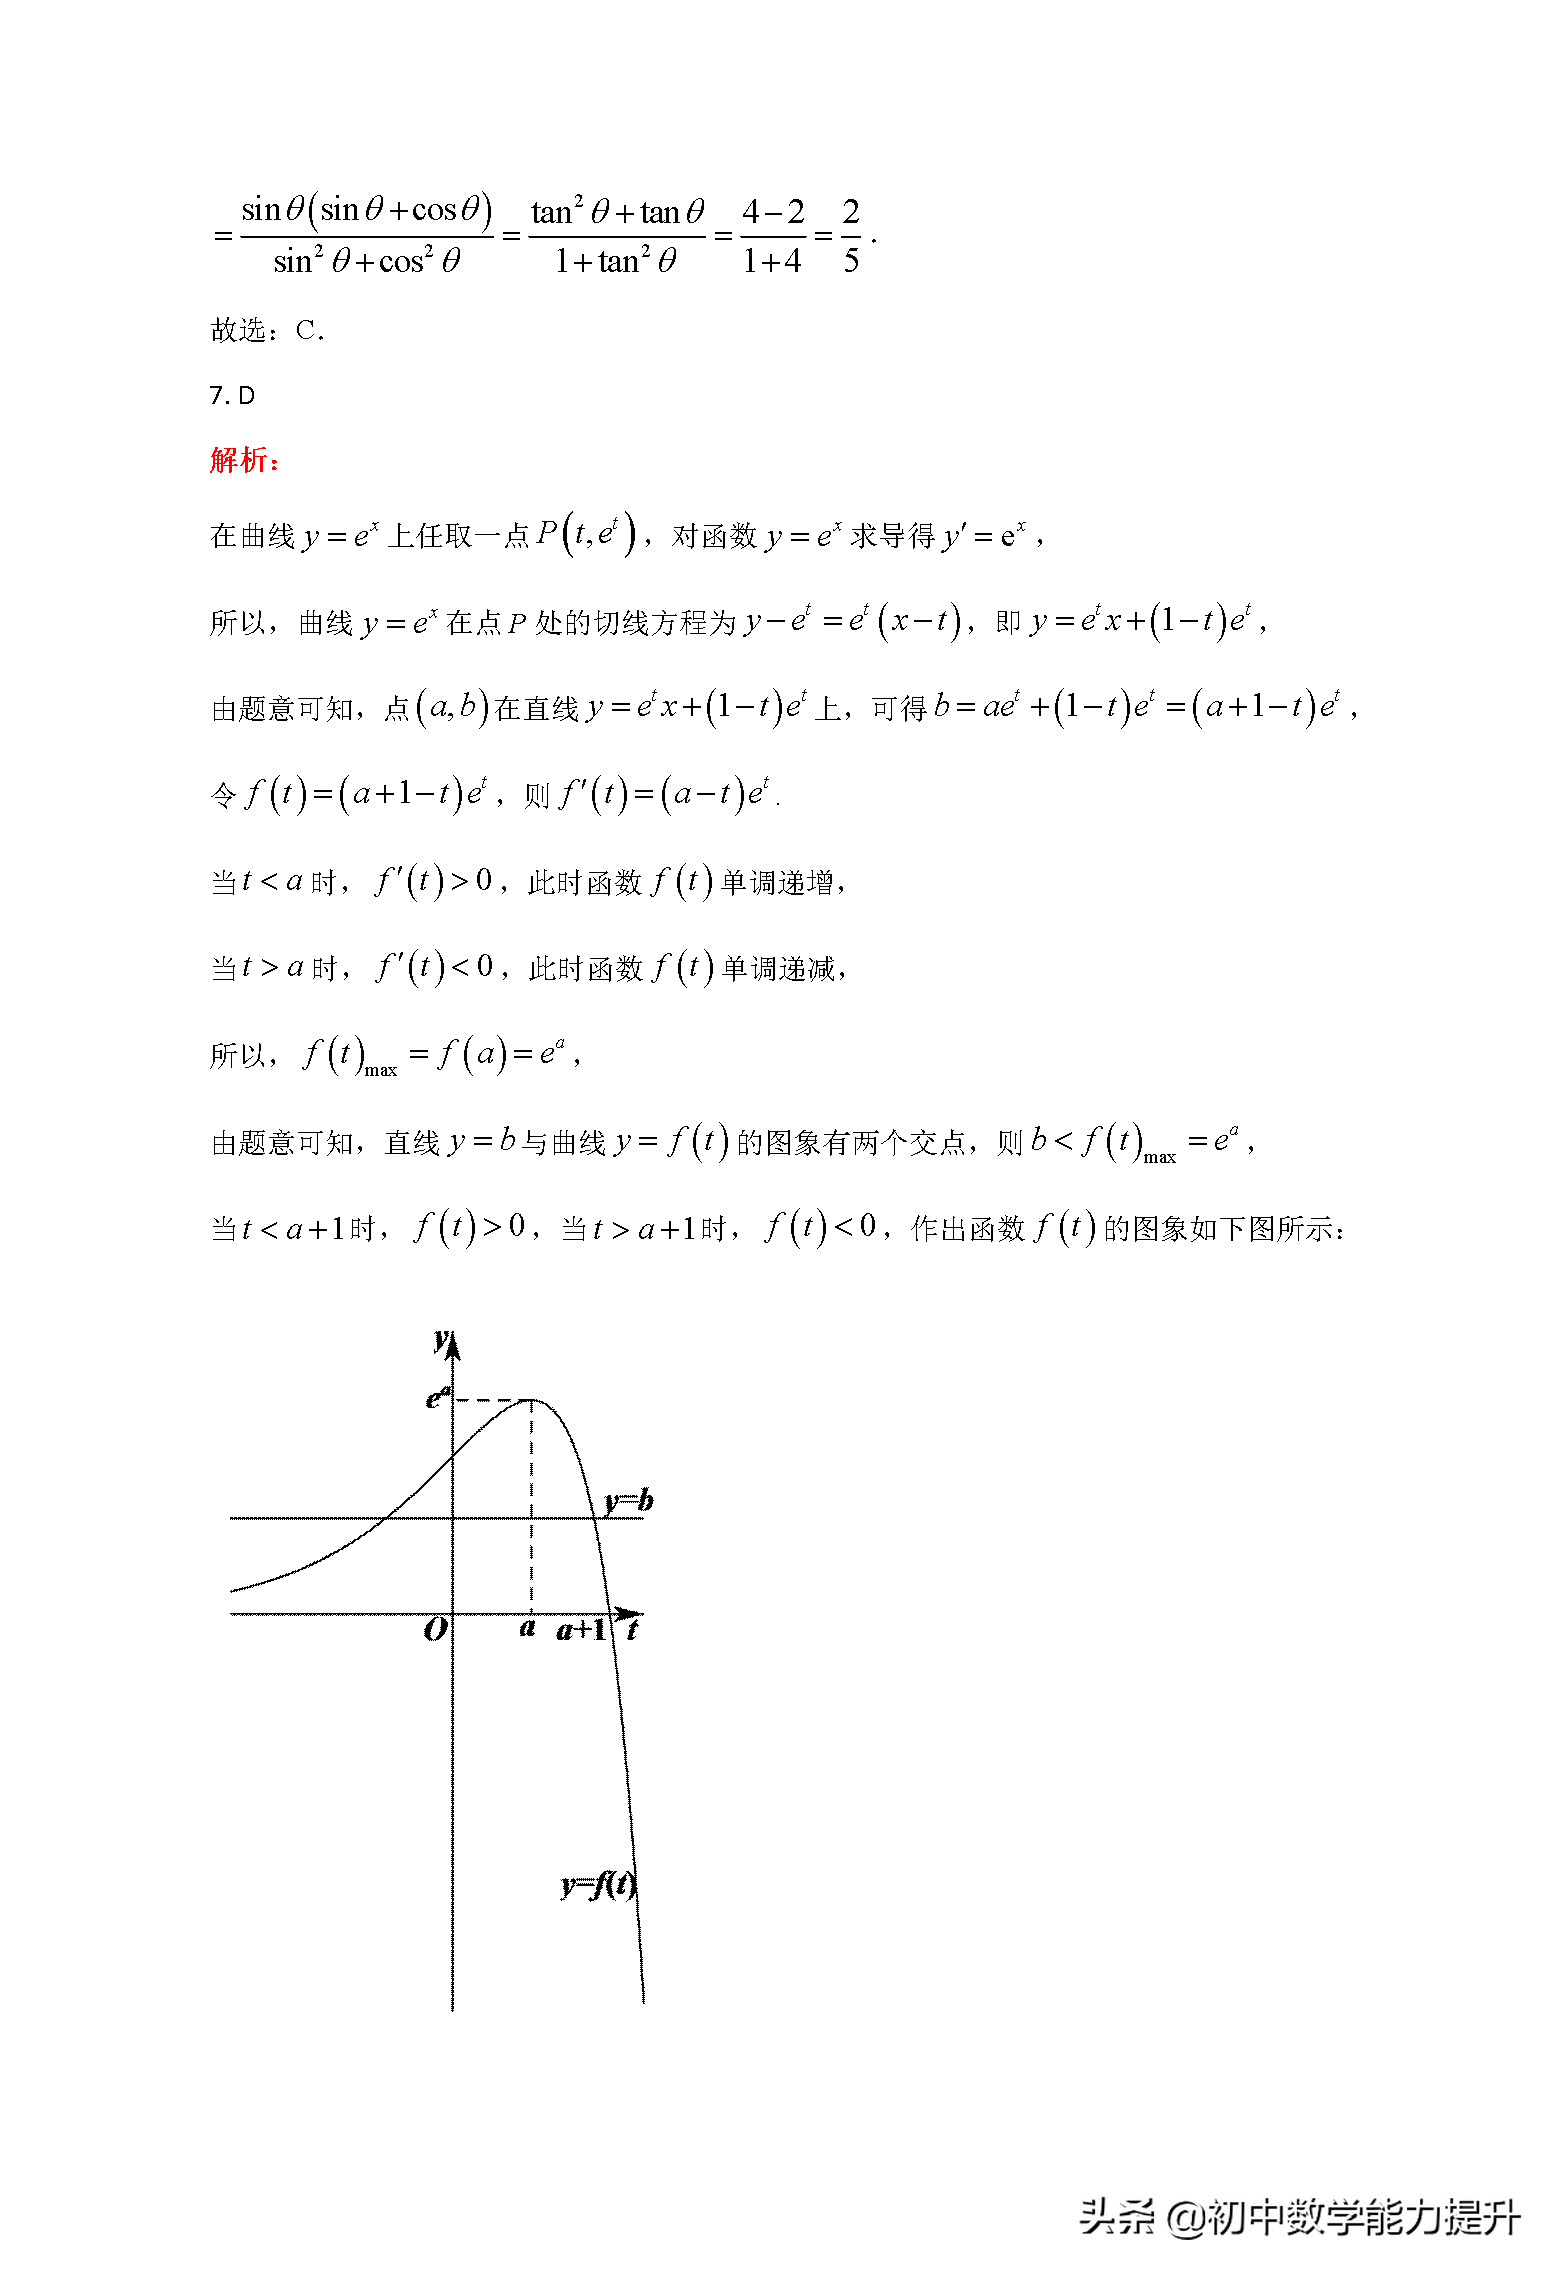 = sinθ(sinθ+cosθ) / (sin²θ+cos²θ) = (tan²θ+tanθ) / (1+tan²θ) = (4−2) / (1+4) = 2/5 .
故选：C.
7. D
解析：
在曲线 y = eˣ 上任取一点 P(t, eᵗ)，对函数 y = eˣ 求导得 y′ = eˣ，
所以，曲线 y = eˣ 在点 P 处的切线方程为 y − eᵗ = eᵗ(x − t)，即 y = eᵗx + (1 − t)eᵗ，
由题意可知，点 (a, b) 在直线 y = eᵗx + (1 − t)eᵗ 上，可得 b = aeᵗ + (1 − t)eᵗ = (a + 1 − t)eᵗ，
令 f(t) = (a + 1 − t)eᵗ，则 f′(t) = (a − t)eᵗ.
当 t < a 时，f′(t) > 0，此时函数 f(t) 单调递增，
当 t > a 时，f′(t) < 0，此时函数 f(t) 单调递减，
所以，f(t)max = f(a) = eᵃ，
由题意可知，直线 y = b 与曲线 y = f(t) 的图象有两个交点，则 b < f(t)max = eᵃ，
当 t < a + 1 时，f(t) > 0，当 t > a + 1 时，f(t) < 0，作出函数 f(t) 的图象如下图所示：
y
eᵃ
y=b
O a a+1 t
y=f(t)
头条 @初中数学能力提升